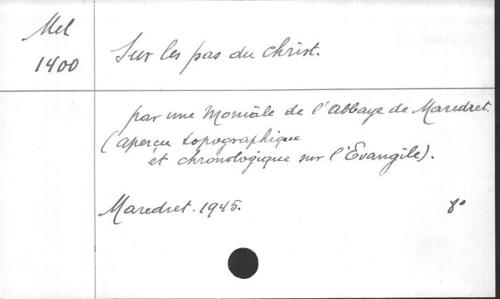 Mel
1400
Sur les pas du Christ.
par une Moniale de l'Abbaye de Maredret.
(aperçu topographique
et chronologique sur l'Évangile).
Maredret. 1945.
8°